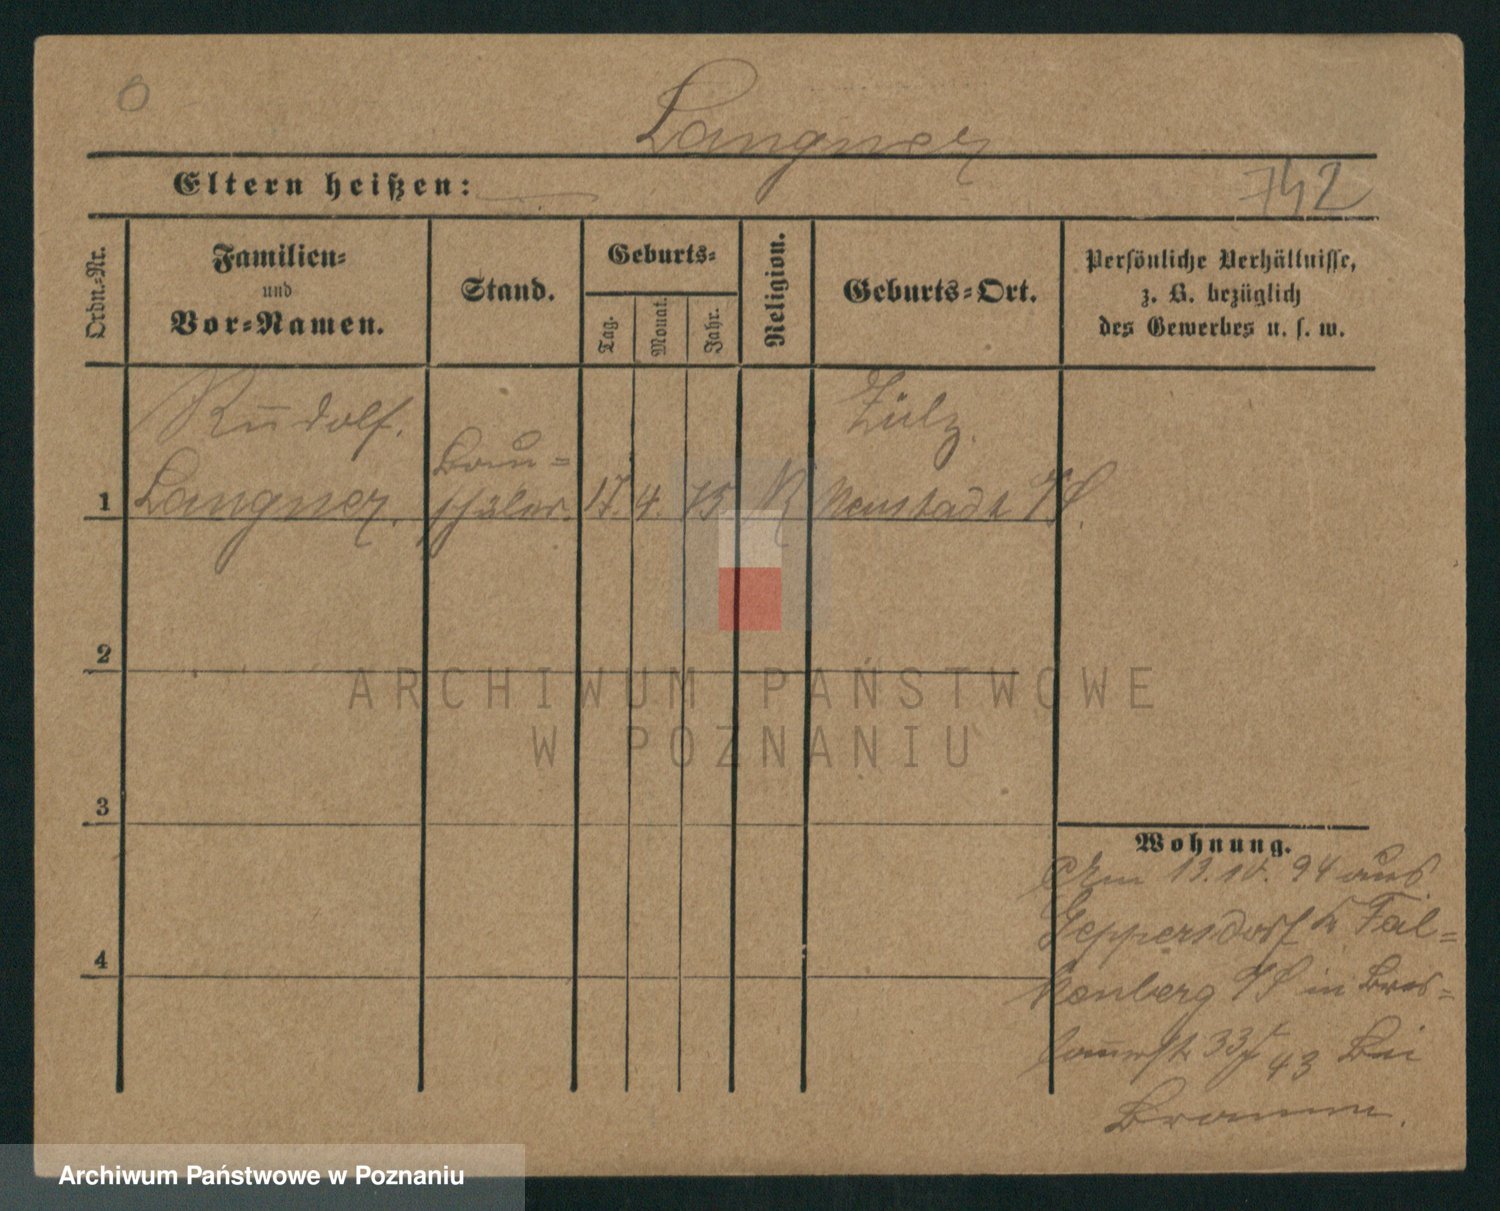 0
Langner
Eltern heißen:
742
Ordn.-Nr.
Familien-
und
Vor-Namen.
Stand.
Geburts-
Tag.
Monat.
Jahr.
Religion.
Geburts-Ort.
Persönliche Verhältnisse,
z. B. bezüglich
des Gewerbes u. s. w.
Rudolf.
Zülz.
Bau-
1 Langner. schüler. 17. 4. 75 K Neustadt OS.
2
ARCHIWUM PAŃSTWOWE
W POZNANIU
3
Wohnung.
Am 13.10.94 aus
Geppersdorf Kr Fal-
4
kenberg OS in Bres-
33 43 bei
Archiwum Państwowe w Poznaniu